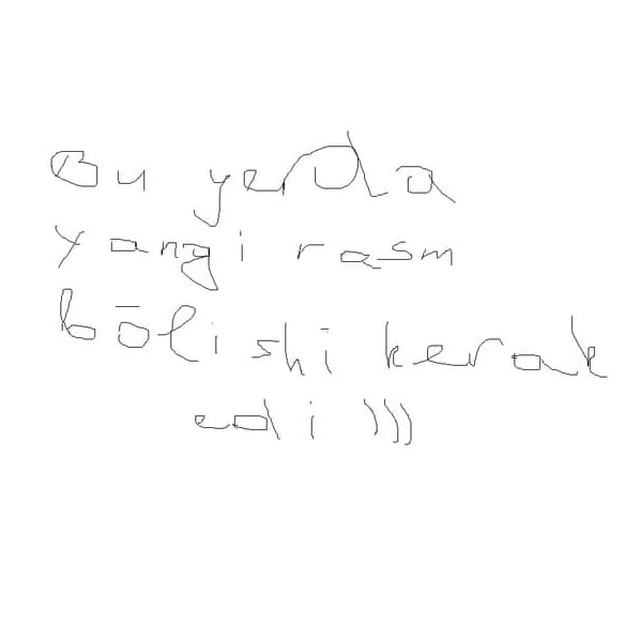 Bu yerda
yangi rasm
bōlishi kerak
edi )))